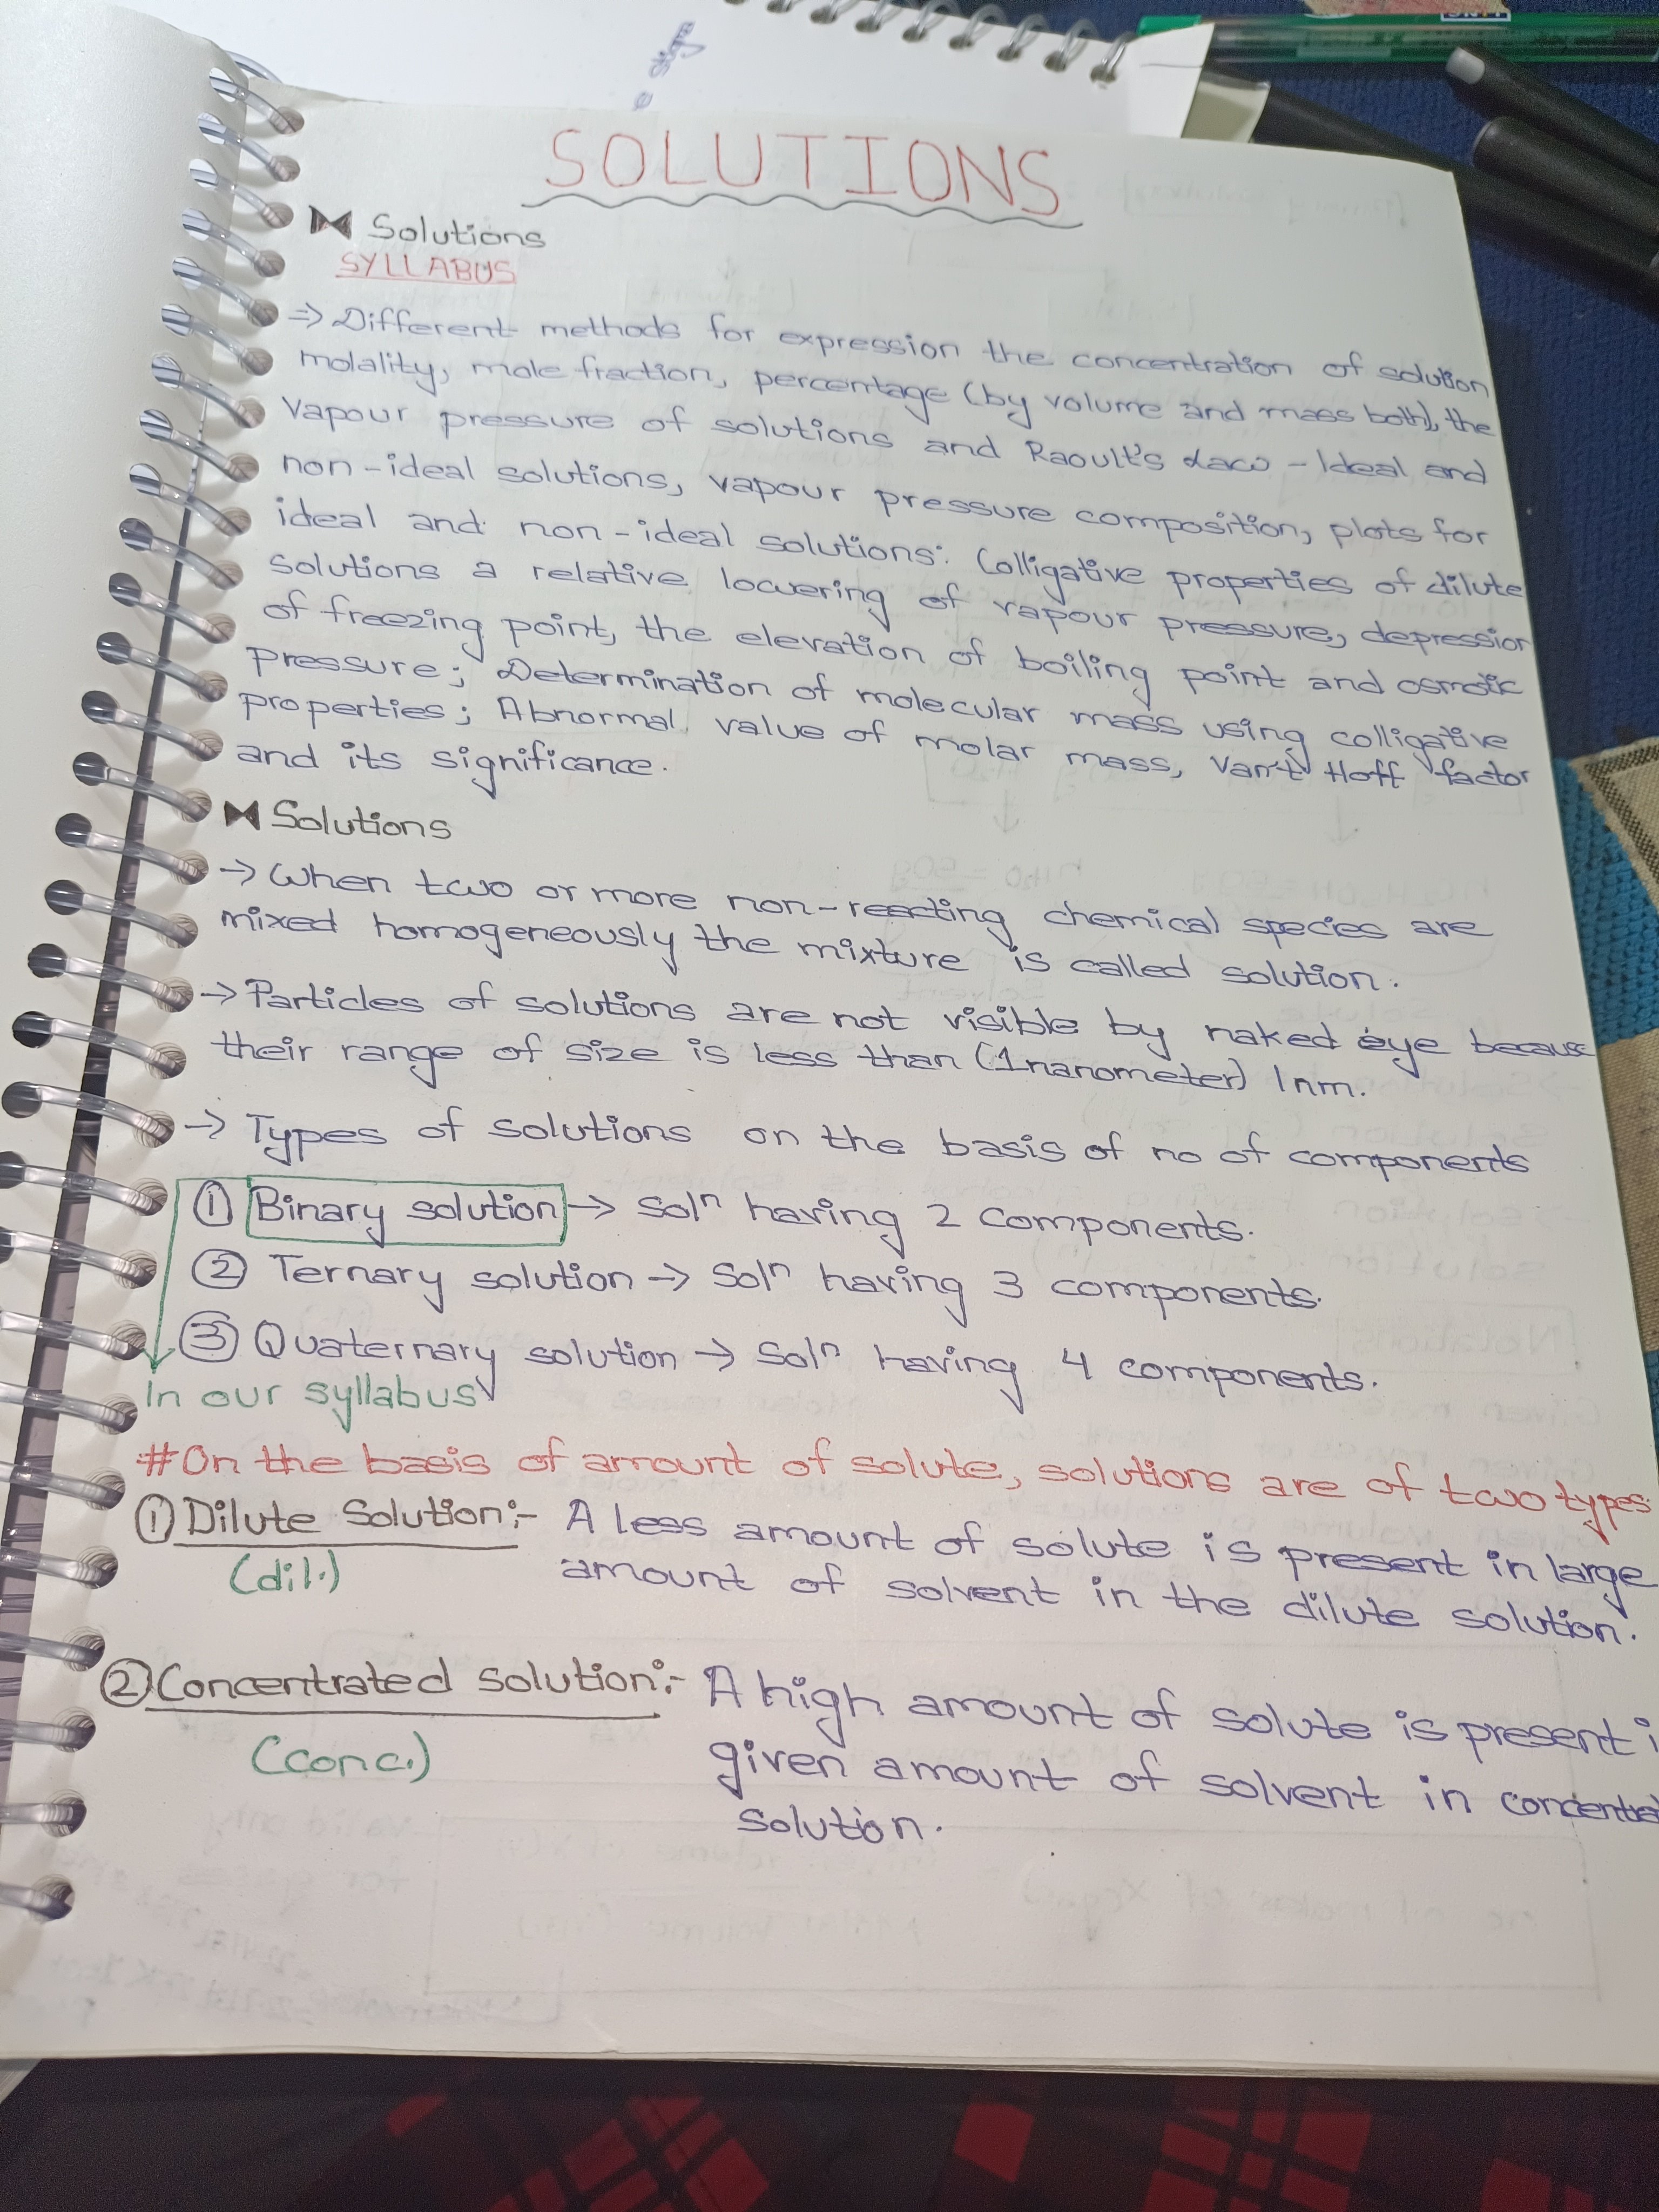 SOLUTIONS
Solutions
SYLLABUS
=> Different methods for expression the concentration of solution
molality, mole fraction, percentage (by volume and mass both), the
Vapour pressure of solutions and Raoult's Law - Ideal and
non-ideal solutions, vapour pressure composition, plots for
ideal and non-ideal solutions: Colligative properties of dilute
solutions a relative lowering of vapour pressure, depression
of freezing point, the elevation of boiling point and osmotic
pressure; Determination of molecular mass using colligative
properties; Abnormal value of molar mass, Van't Hoff factor
and its significance.
Solutions
-> When two or more non-reacting chemical species are
mixed homogeneously the mixture is called solution.
-> Particles of solutions are not visible by naked eye because
their range of size is less than (1nanometer) 1nm.
-> Types of solutions on the basis of no of components
① Binary solution -> Solⁿ having 2 components.
② Ternary solution -> Solⁿ having 3 components.
③ Quaternary solution -> Solⁿ having 4 components.
In our syllabus
#On the basis of amount of solute, solutions are of two types:
① Dilute Solution:- A less amount of solute is present in large
(dil.) amount of solvent in the dilute solution.
② Concentrated solution:- A high amount of solute is present i
(conc.) given amount of solvent in
solution.